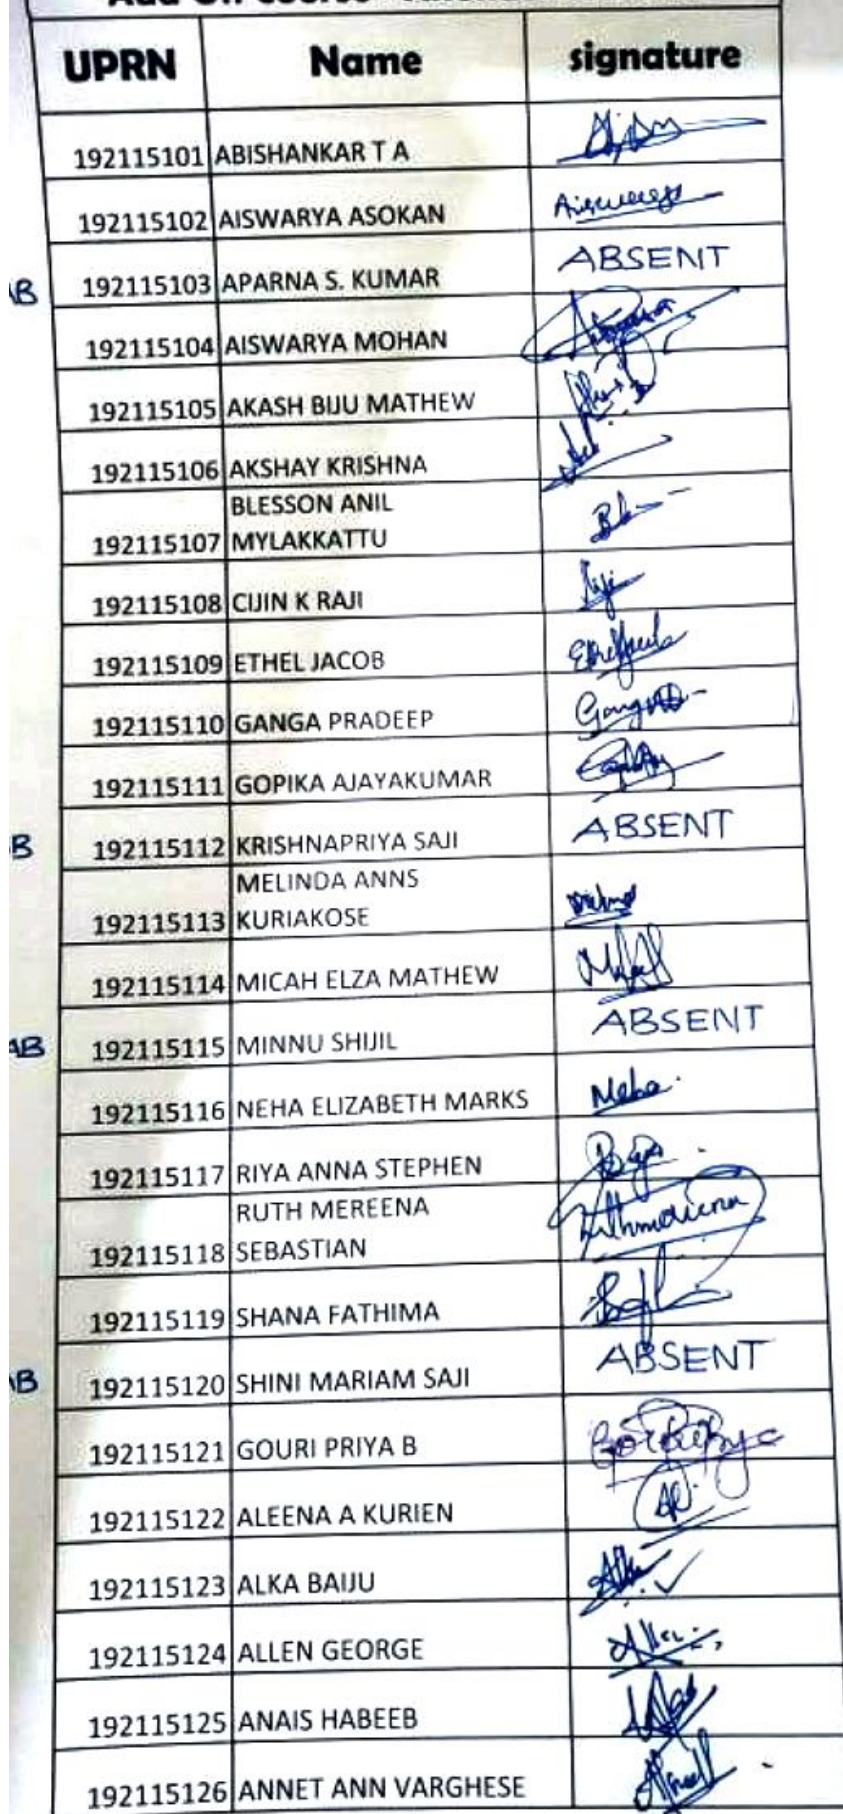 UPRN Name signature
192115101 ABISHANKAR T A
192115102 AISWARYA ASOKAN
192115103 APARNA S. KUMAR ABSENT
192115104 AISWARYA MOHAN
192115105 AKASH BIJU MATHEW
192115106 AKSHAY KRISHNA
BLESSON ANIL
192115107 MYLAKKATTU
192115108 CIJIN K RAJI
192115109 ETHEL JACOB
192115110 GANGA PRADEEP
192115111 GOPIKA AJAYAKUMAR
B 192115112 KRISHNAPRIYA SAJI ABSENT
MELINDA ANNS
192115113 KURIAKOSE
192115114 MICAH ELZA MATHEW
AB 192115115 MINNU SHIJIL ABSENT
192115116 NEHA ELIZABETH MARKS Neha
192115117 RIYA ANNA STEPHEN
RUTH MEREENA
192115118 SEBASTIAN
192115119 SHANA FATHIMA
192115120 SHINI MARIAM SAJI ABSENT
192115121 GOURI PRIYA B
192115122 ALEENA A KURIEN
192115123 ALKA BAIJU
192115124 ALLEN GEORGE
192115125 ANAIS HABEEB
192115126 ANNET ANN VARGHESE